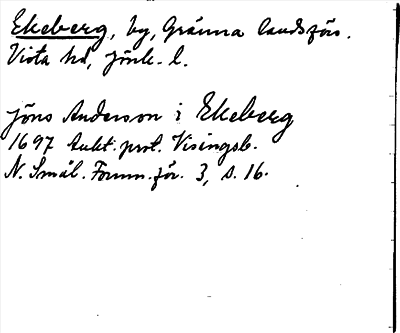 Ekeberg, by, Gränna landsförs.
Vista hd, Jönk. l.
Jöns Andersson i Ekeberg
1697 Aukt. prot. Visingsb.
N. Smål. Fornm. för. 3, s. 16.